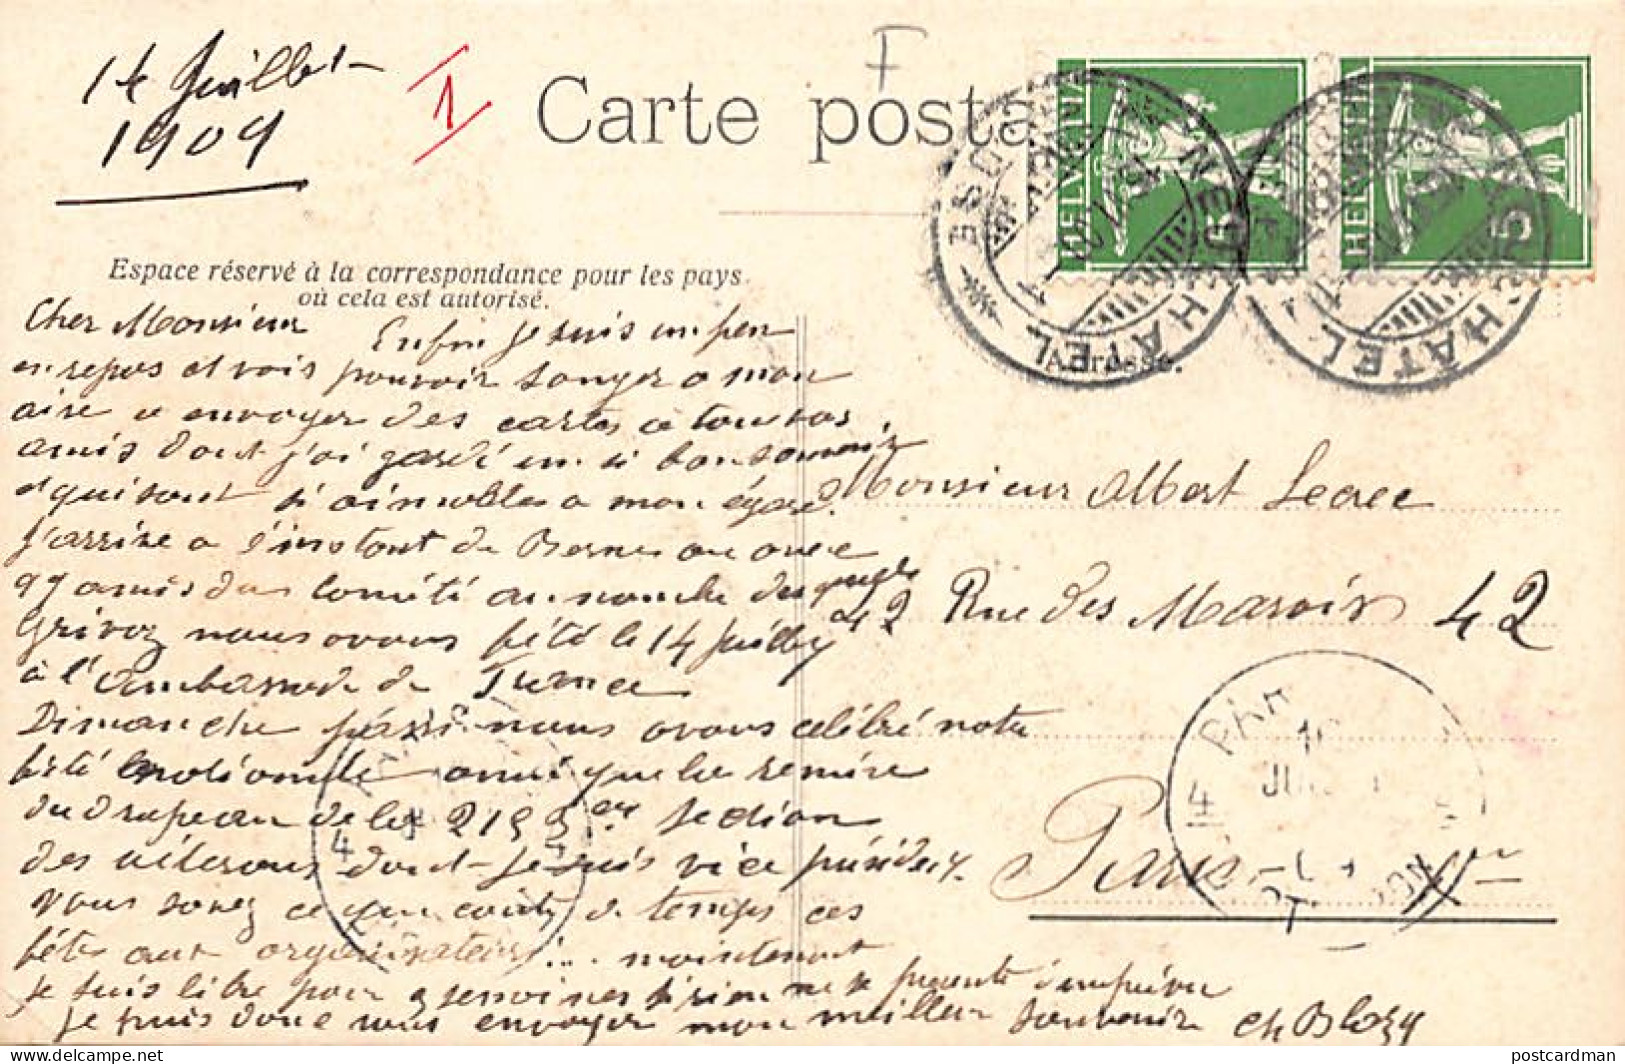 14 Juillet
1909
1
F
Carte posta
HELVETIA 5
HELVETIA 5
NEUCHATEL
Espace réservé à la correspondance pour les pays
où cela est autorisé.
Adresse.
Cher Monsieur Enfin je suis un peu
en repos et vais pouvoir songer a mon
aise a envoyer des cartes a tous vos
amis dont j'ai gardé un si bon souvenir
et qui sont si aimables a mon égard.
J'arrive a l'instant de Berne ou avec
99 amis du Comité au nombre des quels
nous avons fêté le 14 Juillet
à l'ambassade de France
Dimanche passé nous avons célébré notre
fête nationale ainsi que la remise
du drapeau de la section
des vétérans dont je suis vice président.
Vous savez ce que coute de temps ces
fêtes aux organisateurs ... maintenant
je suis libre pour semaines si rien ne se présente d'imprévu
je puis donc vous envoyer mon meilleur souvenir
Monsieur Albert
42 Rue des Marais 42
Paris
PAR
4
4
4
postcardman